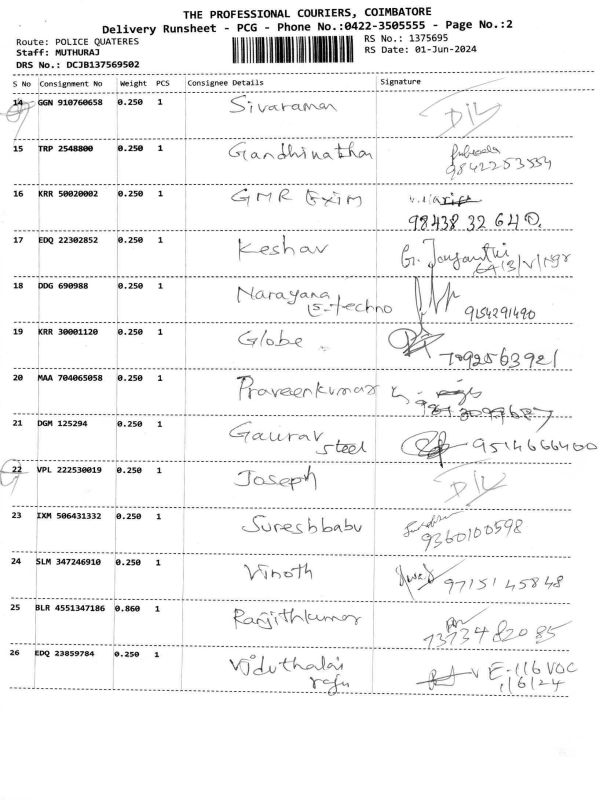 THE PROFESSIONAL COURIERS, COIMBATORE
Delivery Runsheet - PCG - Phone No.:0422-3505555 - Page No.:2
Route: POLICE QUATERES
RS No.: 1375695
Staff: MUTHURAJ
RS Date: 01-Jun-2024
DRS No.: DCJB137569502
S No Consignment No Weight PCS Consignee Details Signature
14 GGN 910760658 0.250 1 Sivaraman D/L
15 TRP 2548800 0.250 1 Gandhinathan
9842253554
16 KRR 50020002 0.250 1 GMR Exim
98438 32 640.
17 EDQ 22302852 0.250 1 Keshav G. Jayanthi
18 DDG 690988 0.250 1 Narayana
E-techno 9154291490
19 KRR 30001120 0.250 1 Globe
7092563921
20 MAA 704065058 0.250 1 Praveenkumar
21 DGM 125294 0.250 1 Gaurav
steel 9514666400
22 VPL 222530019 0.250 1 Joseph D/L
23 IXM 506431332 0.250 1 Sureshbabu
9360100598
24 SLM 347246910 0.250 1 Vinoth 97151 45848
25 BLR 4551347186 0.860 1 Ranjithkumar
73734 82085
26 EDQ 23859784 0.250 1 Viduthalai
raju E-116 VOC
1/6/24